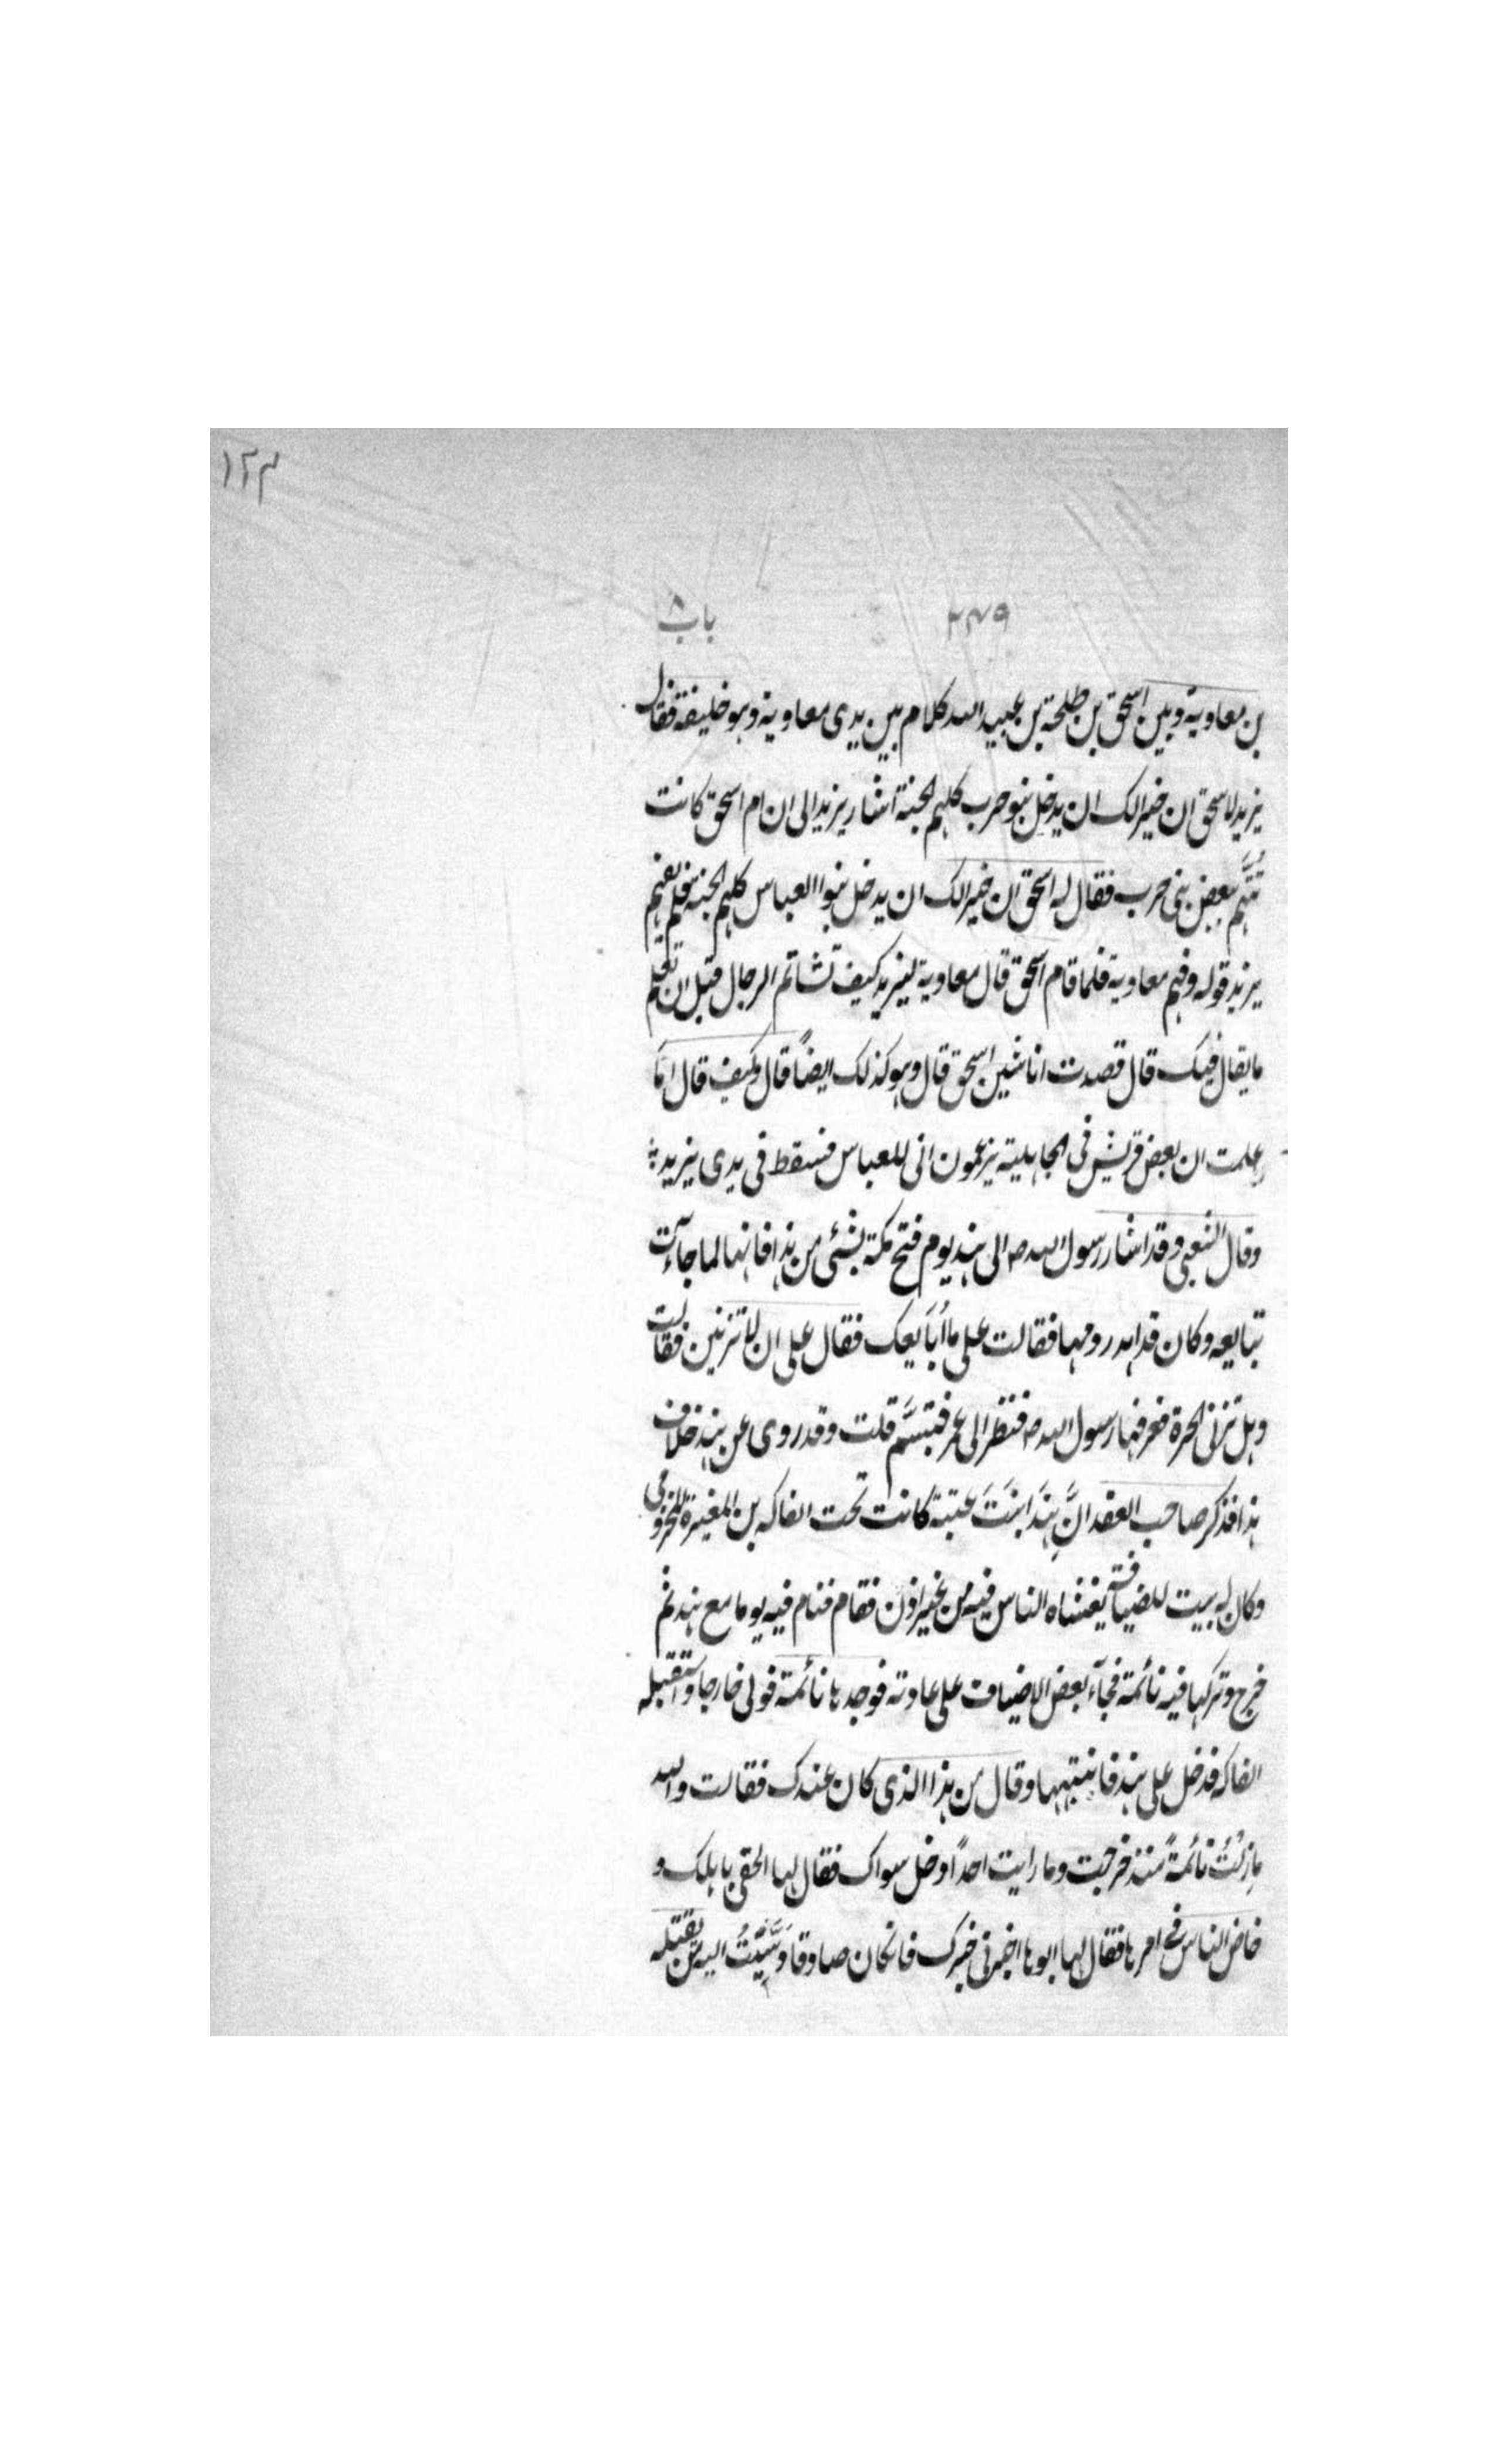 ١٢٣
٢٣٩ باب ٨
بن معاوية وبين اسحق بن طلحة بن عبيد الله كلام بين يدى معاوية وهو خليفة فقال
يزيد لاسحق ان خيرالك ان يدخل بنو حرب كلهم الجنة اشار يزيد الى ان ام اسحق كانت
تُتَّهم ببعض بنى حرب فقال له اسحق ان خيرالك ان يدخل بنوا العباس كلهم الجنة فلم يفهم
يزيد قوله وفهم معاوية فلما قام اسحق قال معاوية ليزيد كيف تشاتم الرجال قبل ان تعلم
ما يقال فيك قال قصدت انا شين اسحق قال وهو كذلك ايضاً قال وكيف قال اما
علمت ان بعض قريش فى الجاهلية يزعمون انى للعباس فسقط فى يدى يزيد
وقال الشعبى وقد اشار رسول الله ص الى هند يوم فتح مكة بشئى من هذا فانها لما جآءت
تبايعه وكان قد اهدر دمها فقالت على ما اُبَايعك فقال على ان لا تزنين فقالت
وهل تزنى الحرة فعرفها رسول الله ص فنظر الى عمر فتبسَّم قلت وقد روى عن هند خلاف
هذا فذكر صاحب العقد انَّ هندَ ابنَتَ عتبة كانت تحت الفاكه بن المغيرة المخزومى
وكان له بيت للضيافة يغشاه الناس فيه من غير اذن فقام فنام فيه يوما مع هند ثم
خرج وتركها فيه نائمة فجآء بعض الاضياف على عادته فوجدها نائمة فولى خارجا واستقبله
الفاكه فدخل على هند فانبتهها وقال من هذا الذى كان عندك فقالت والله
ما زلتُ نائمةً منذ خرجت وما رايت احداً دخل سواك فقال لها الحقى باهلك و
خاض الناس فى امرها فقال لها ابوها اخبرنى خبرك فانكان صادقا دَسَّيْتُ اليه من يقتله